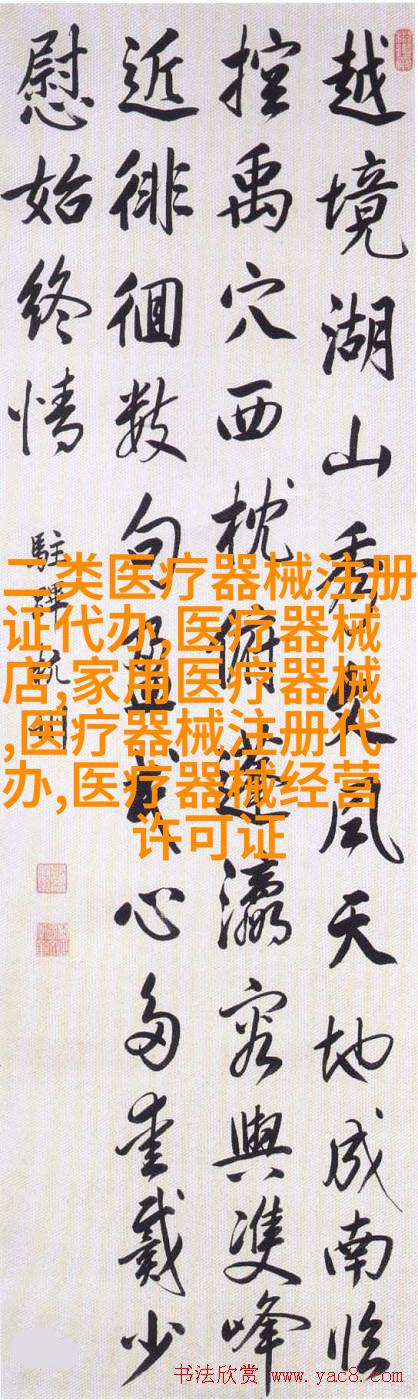 越境湖山秀文風天地成南臨
控禹穴西枕俯蓬瀛容與雙峰
近徘徊數句盈我心多愛戴少
慰始終情
二类医疗器械注册
证代办,医疗器械
店,家用医疗器械
,医疗器械注册代
办,医疗器械经营
许可证
书法欣赏 www.yac8.com